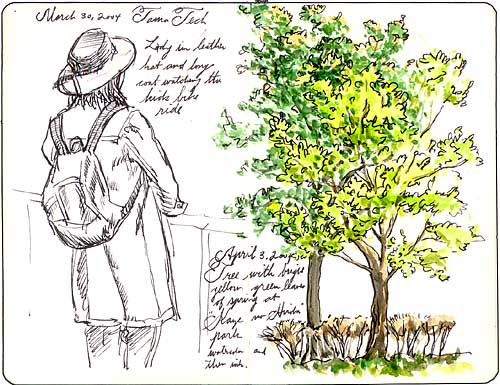 March 30, 2004 Tama Tech
Lady in leather
hat and long
coat watching the
kids bike
ride
April 3, 2004
Tree with bright
yellow green leaves
of spring at
"Kaze no Hiroba"
park
watercolor and
then ink.